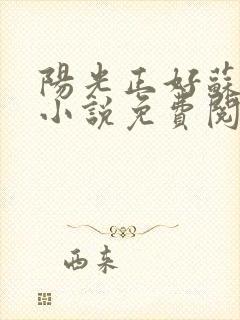 陽光正好蘇
小說免費閱
西來